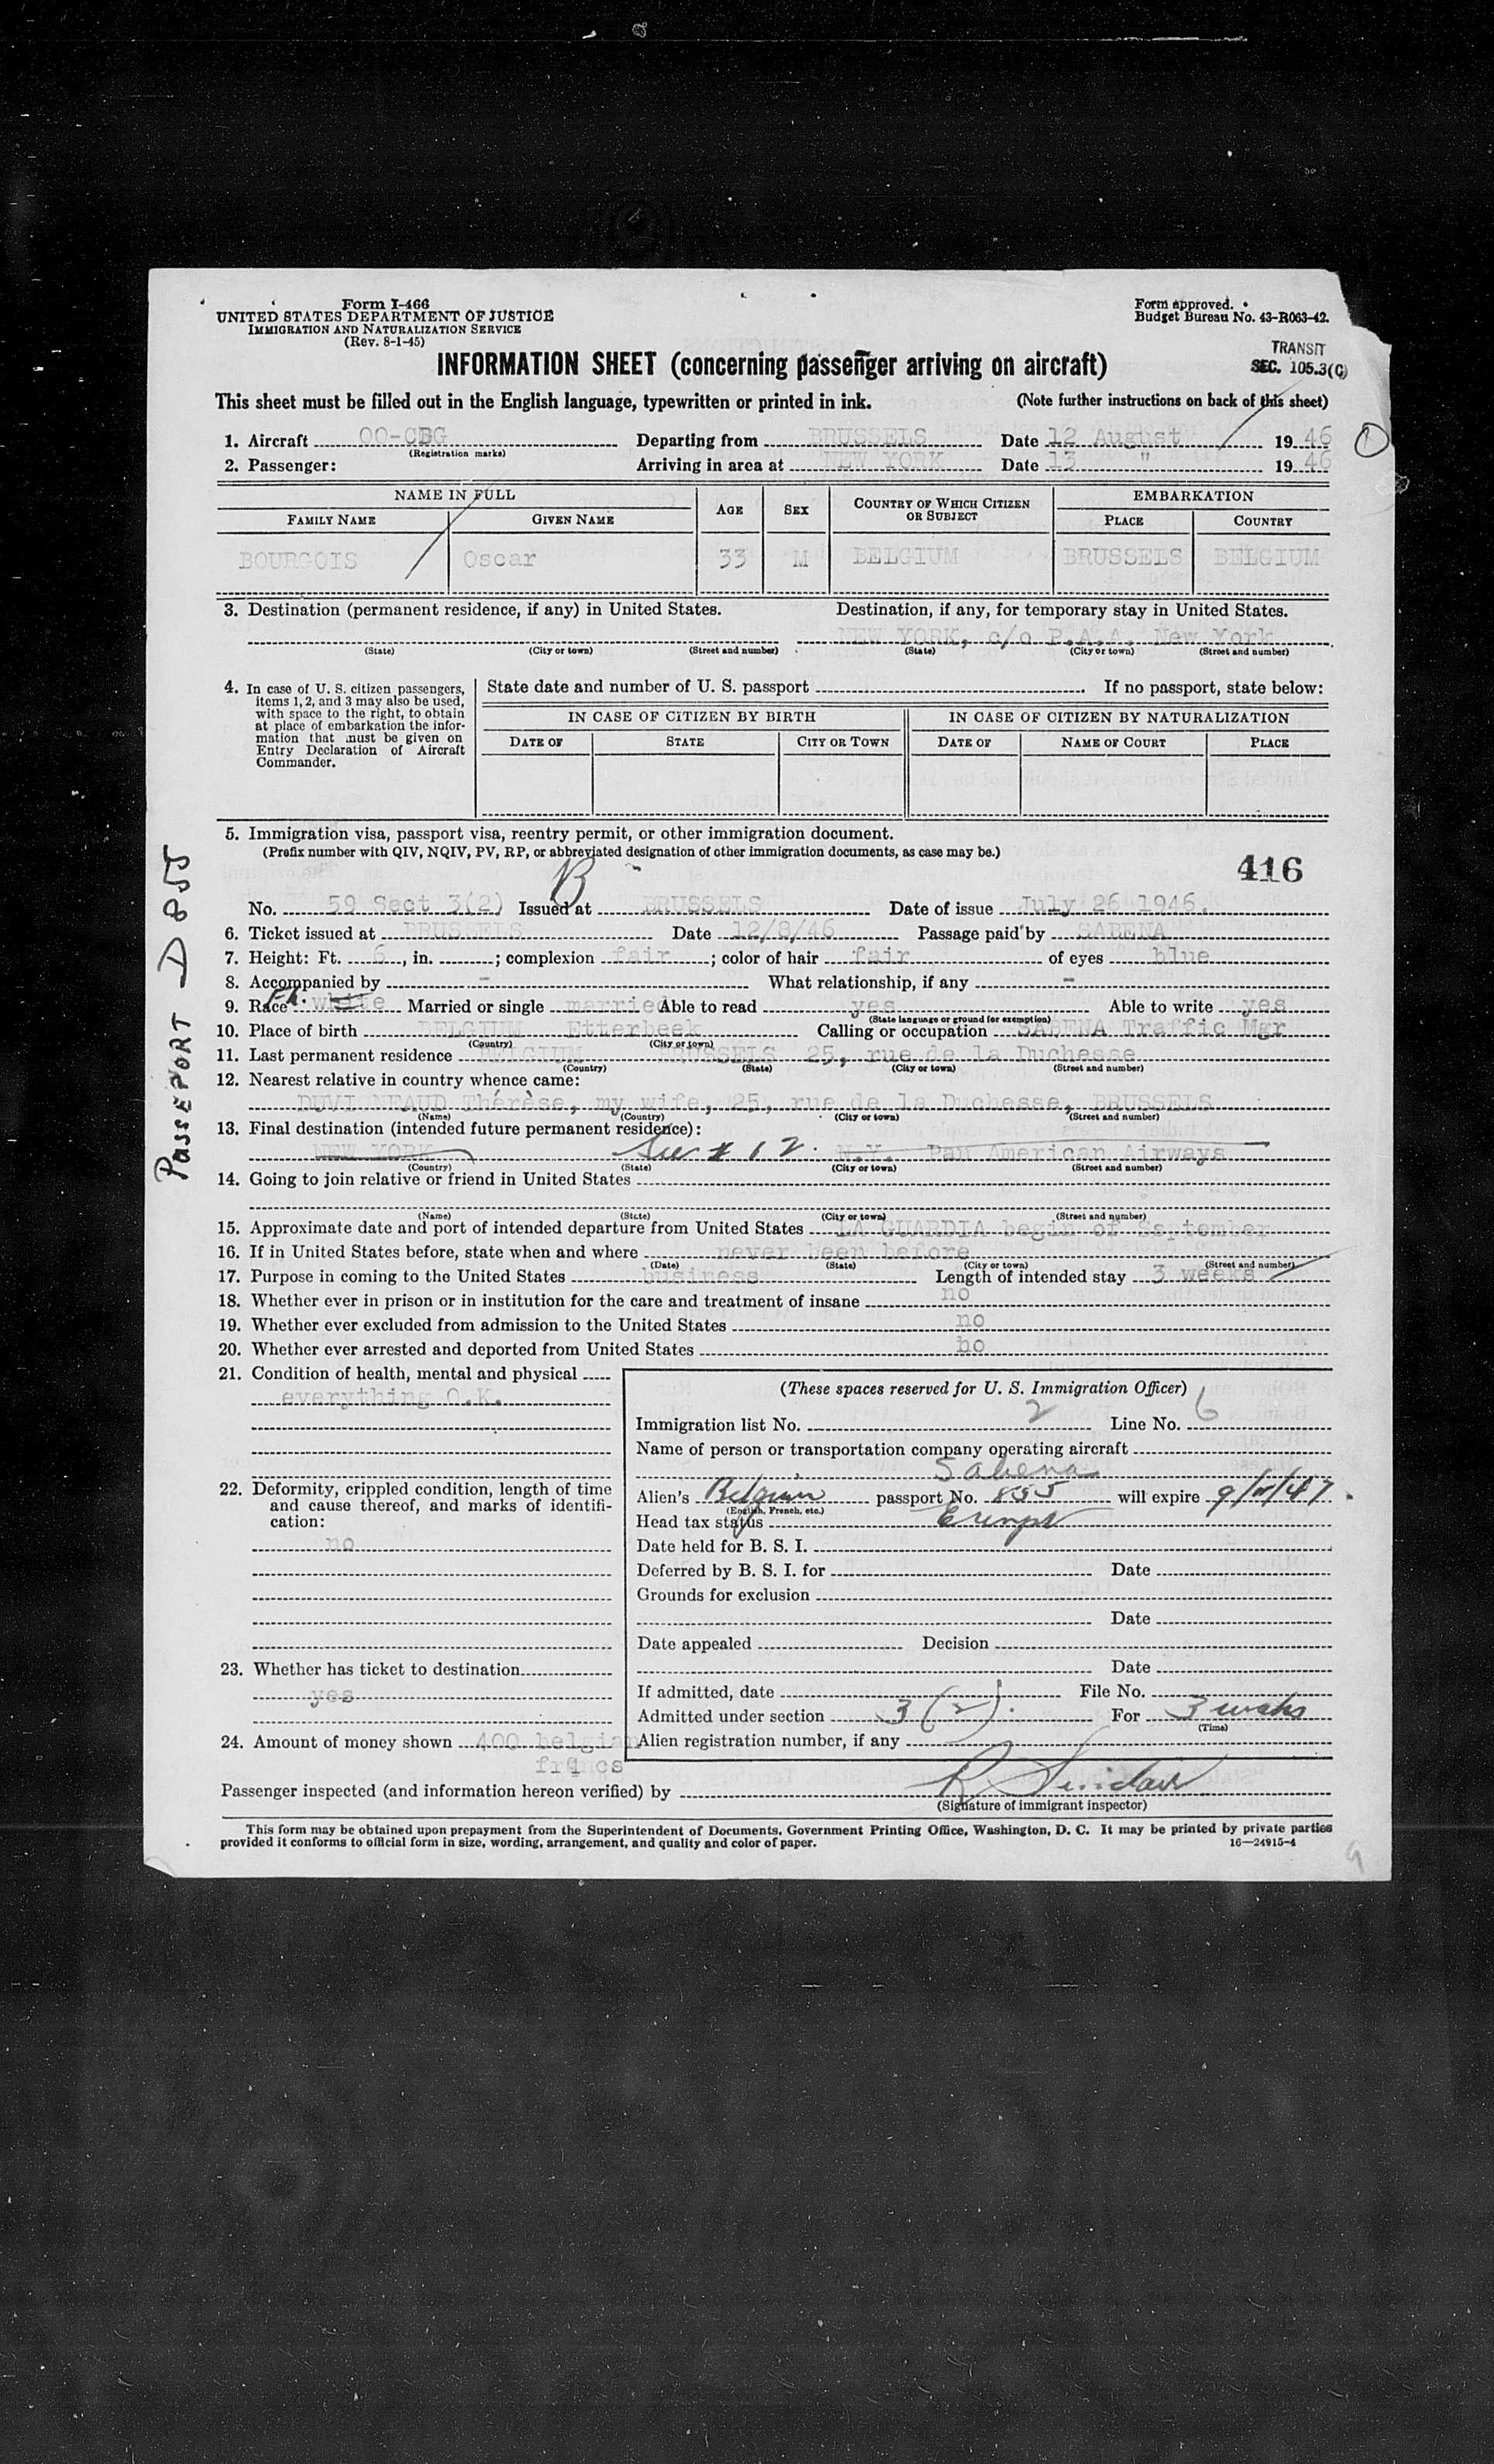 Form I-466
UNITED STATES DEPARTMENT OF JUSTICE
IMMIGRATION AND NATURALIZATION SERVICE
(Rev. 8-1-45)
Form approved.
Budget Bureau No. 43-R063-42.
TRANSIT
SEC. 105.3(C)
INFORMATION SHEET (concerning passenger arriving on aircraft)
This sheet must be filled out in the English language, typewritten or printed in ink. (Note further instructions on back of this sheet)
1. Aircraft OO-CBG Departing from BRUSSELS Date 12 August 1946
(Registration marks)
2. Passenger: Arriving in area at NEW YORK Date 13 " 1946
NAME IN FULL
FAMILY NAME GIVEN NAME AGE SEX COUNTRY OF WHICH CITIZEN OR SUBJECT EMBARKATION
PLACE COUNTRY
BOURGOIS Oscar 33 M BELGIUM BRUSSELS BELGIUM
3. Destination (permanent residence, if any) in United States. Destination, if any, for temporary stay in United States.
NEW YORK, c/o P.A.A. New York
(State) (City or town) (Street and number) (State) (City or town) (Street and number)
4. In case of U. S. citizen passengers,
items 1, 2, and 3 may also be used,
with space to the right, to obtain
at place of embarkation the infor-
mation that must be given on
Entry Declaration of Aircraft
Commander.
State date and number of U. S. passport If no passport, state below:
IN CASE OF CITIZEN BY BIRTH IN CASE OF CITIZEN BY NATURALIZATION
DATE OF STATE CITY OR TOWN DATE OF NAME OF COURT PLACE
5. Immigration visa, passport visa, reentry permit, or other immigration document.
(Prefix number with QIV, NQIV, PV, RP, or abbreviated designation of other immigration documents, as case may be.)
416
B
No. 59 Sect 3(2) Issued at BRUSSELS Date of issue July 26 1946.
6. Ticket issued at BRUSSELS Date 12/8/46 Passage paid by SABENA
7. Height: Ft. 6, in. ; complexion fair ; color of hair fair of eyes blue
8. Accompanied by - What relationship, if any -
9. Race Fr. white Married or single married Able to read yes Able to write yes
(State language or ground for exemption)
10. Place of birth BELGIUM Etterbeek Calling or occupation SABENA Traffic Mgr
(Country) (City or town)
11. Last permanent residence BELGIUM BRUSSELS 25, rue de la Duchesse
(Country) (State) (City or town) (Street and number)
12. Nearest relative in country whence came:
DUVIGNEAUD Thérèse, my wife, 25, rue de la Duchesse, BRUSSELS
(Name) (Country) (City or town) (Street and number)
13. Final destination (intended future permanent residence):
NEW YORK See # 12. N.Y. Pan American Airways
(Country) (State) (City or town) (Street and number)
14. Going to join relative or friend in United States
(Name) (State) (City or town) (Street and number)
15. Approximate date and port of intended departure from United States LA GUARDIA begin of September
16. If in United States before, state when and where never been before
(Date) (State) (City or town) (Street and number)
17. Purpose in coming to the United States business Length of intended stay 3 weeks
18. Whether ever in prison or in institution for the care and treatment of insane no
19. Whether ever excluded from admission to the United States no
20. Whether ever arrested and deported from United States no
21. Condition of health, mental and physical
everything O.K.
22. Deformity, crippled condition, length of time
and cause thereof, and marks of identifi-
cation:
no
23. Whether has ticket to destination
yes
24. Amount of money shown 400 belgian
francs
(These spaces reserved for U. S. Immigration Officer)
Immigration list No. 2 Line No. 6
Name of person or transportation company operating aircraft
Sabena
Alien's Belgium passport No. 855 will expire
(English, French, etc.)
Head tax status Exempt
Date held for B. S. I.
Deferred by B. S. I. for Date
Grounds for exclusion
Date
Date appealed Decision
Date
If admitted, date File No.
Admitted under section 3(2). For 3 weeks
(Time)
Alien registration number, if any
Passenger inspected (and information hereon verified) by R Sinclair
(Signature of immigrant inspector)
This form may be obtained upon prepayment from the Superintendent of Documents, Government Printing Office, Washington, D. C. It may be printed by private parties
provided it conforms to official form in size, wording, arrangement, and quality and color of paper. 16—24915-4
PASSEPORT D 855
9